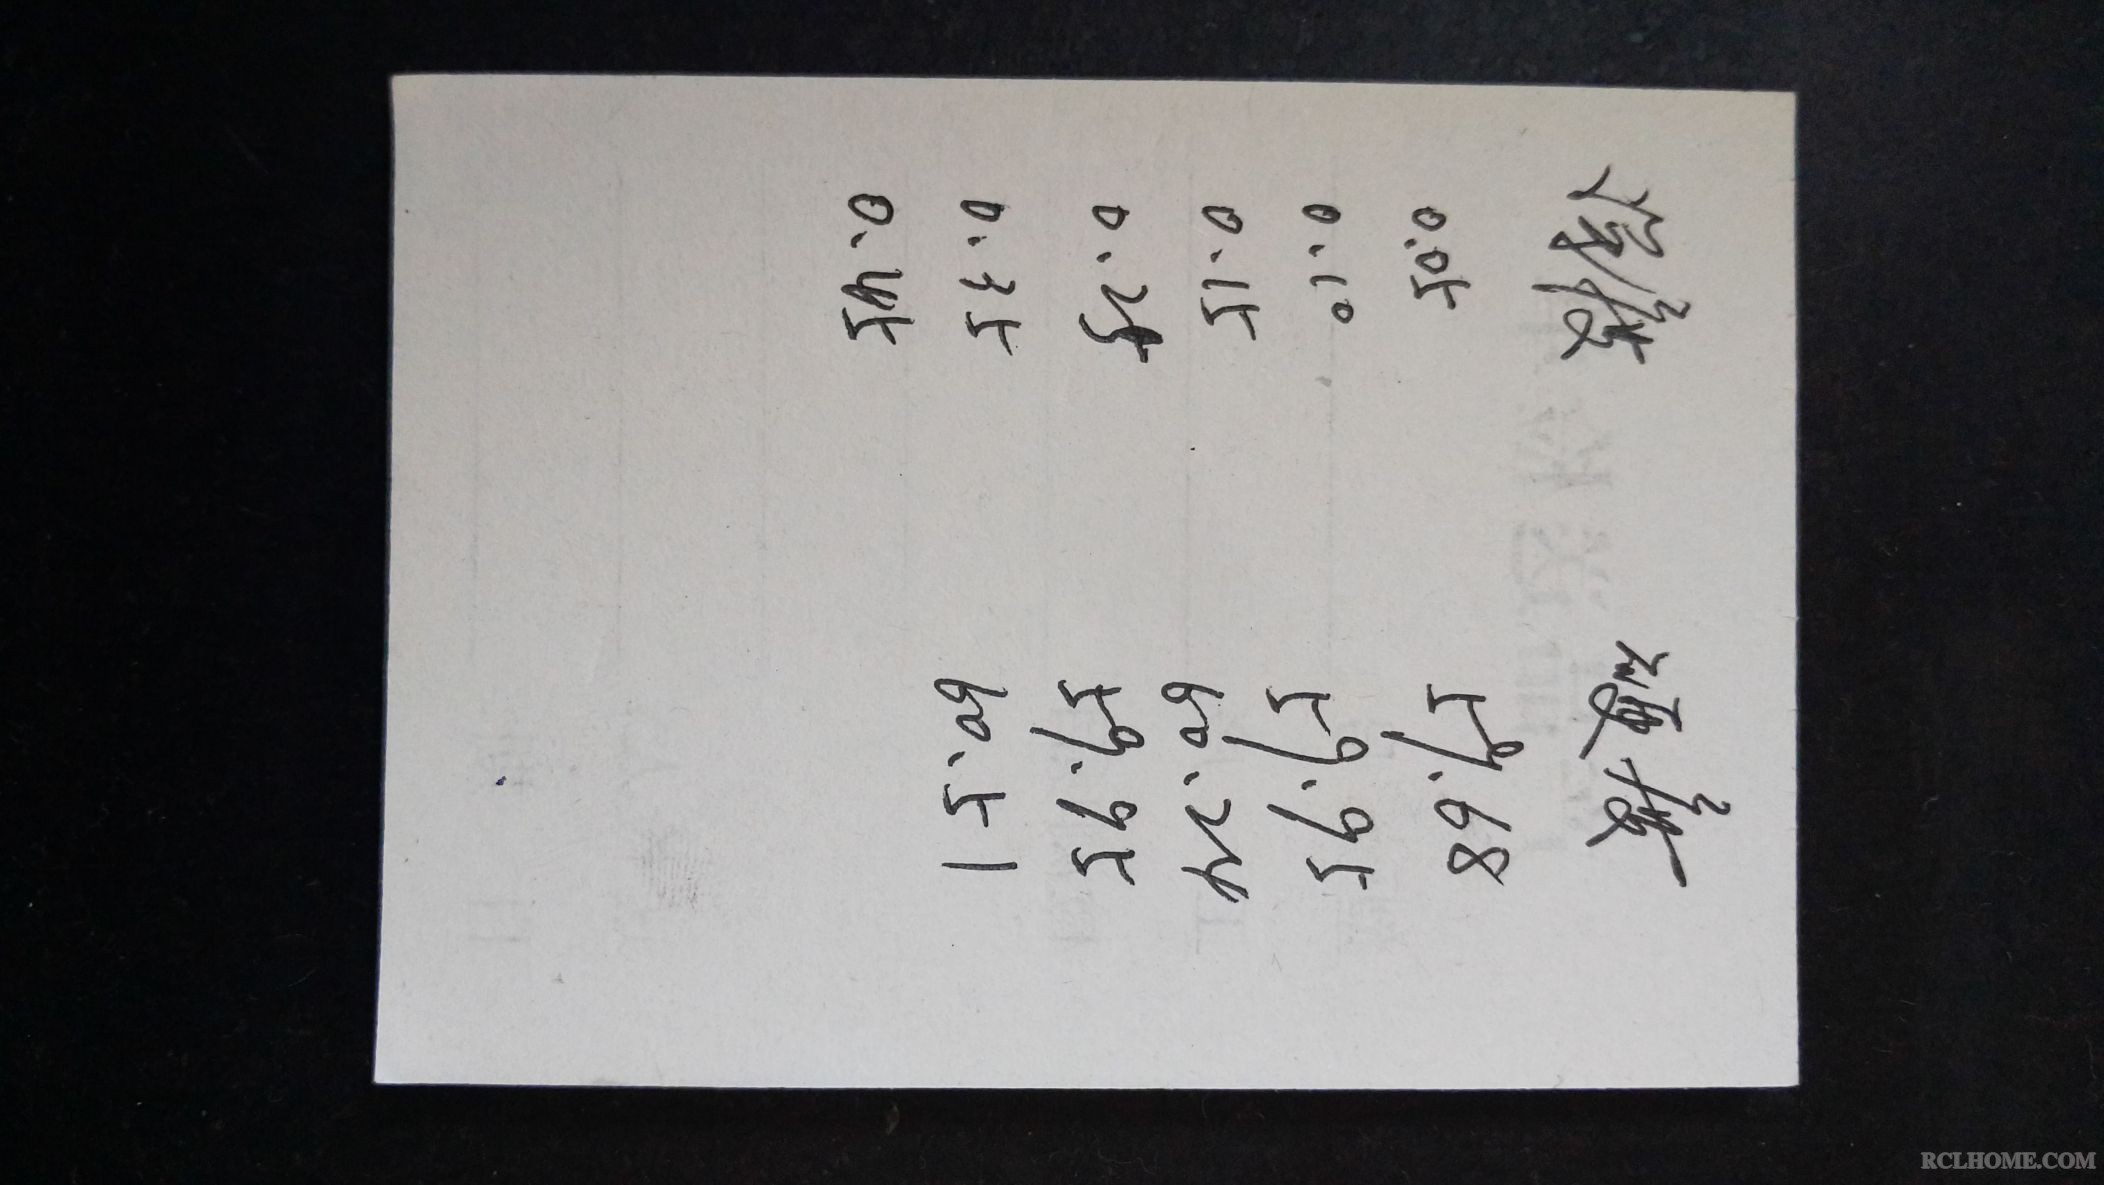 0.05 59.68
0.10 59.95
0.15 60.24
0.25 59.95
0.35 60.51
0.45
RCLHOME.COM